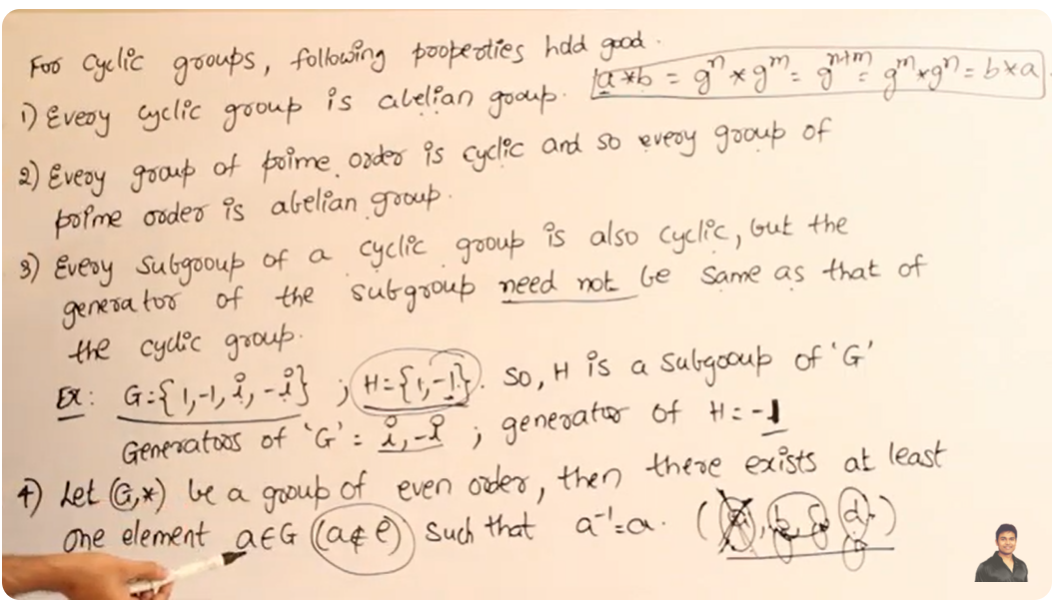 For cyclic groups, following properties hold good.
1) Every cyclic group is abelian group. a*b = gⁿ * gᵐ = gⁿ⁺ᵐ = gᵐ * gⁿ = b*a
2) Every group of prime order is cyclic and so every group of
prime order is abelian group.
3) Every subgroup of a cyclic group is also cyclic, but the
generator of the subgroup need not be same as that of
the cyclic group.
Ex: G={1,-1,i,-i} ; H={1,-1}. So, H is a subgroup of 'G'
Generators of 'G' = i,-i ; generator of H = -1
4) Let (G,*) be a group of even order, then there exists at least
one element a∈G (a∉e) such that a⁻¹=a. (a, b, c, d)